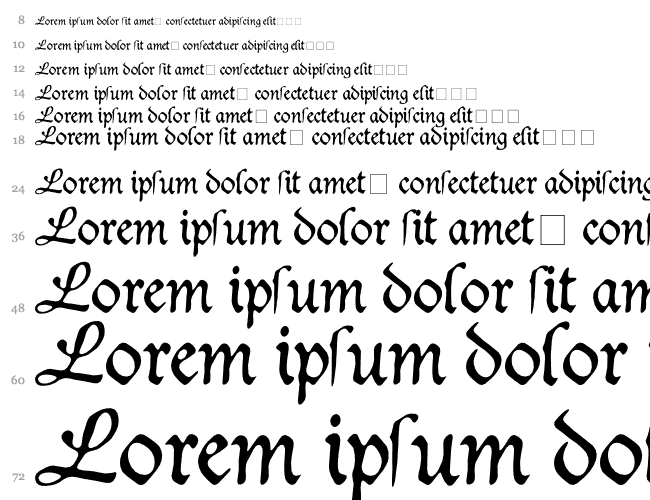 8 Lorem ipſum dolor ſit amet□ conſectetuer adipiſcing elit□□□
10 Lorem ipſum dolor ſit amet□ conſectetuer adipiſcing elit□□□
12 Lorem ipſum dolor ſit amet□ conſectetuer adipiſcing elit□□□
14 Lorem ipſum dolor ſit amet□ conſectetuer adipiſcing elit□□□
16 Lorem ipſum dolor ſit amet□ conſectetuer adipiſcing elit□□□
18 Lorem ipſum dolor ſit amet□ conſectetuer adipiſcing elit□□□
24 Lorem ipſum dolor ſit amet□ conſectetuer adipiſcing
36 Lorem ipſum dolor ſit amet□ conſ
48 Lorem ipſum dolor ſit am
60 Lorem ipſum dolor
72 Lorem ipſum dol